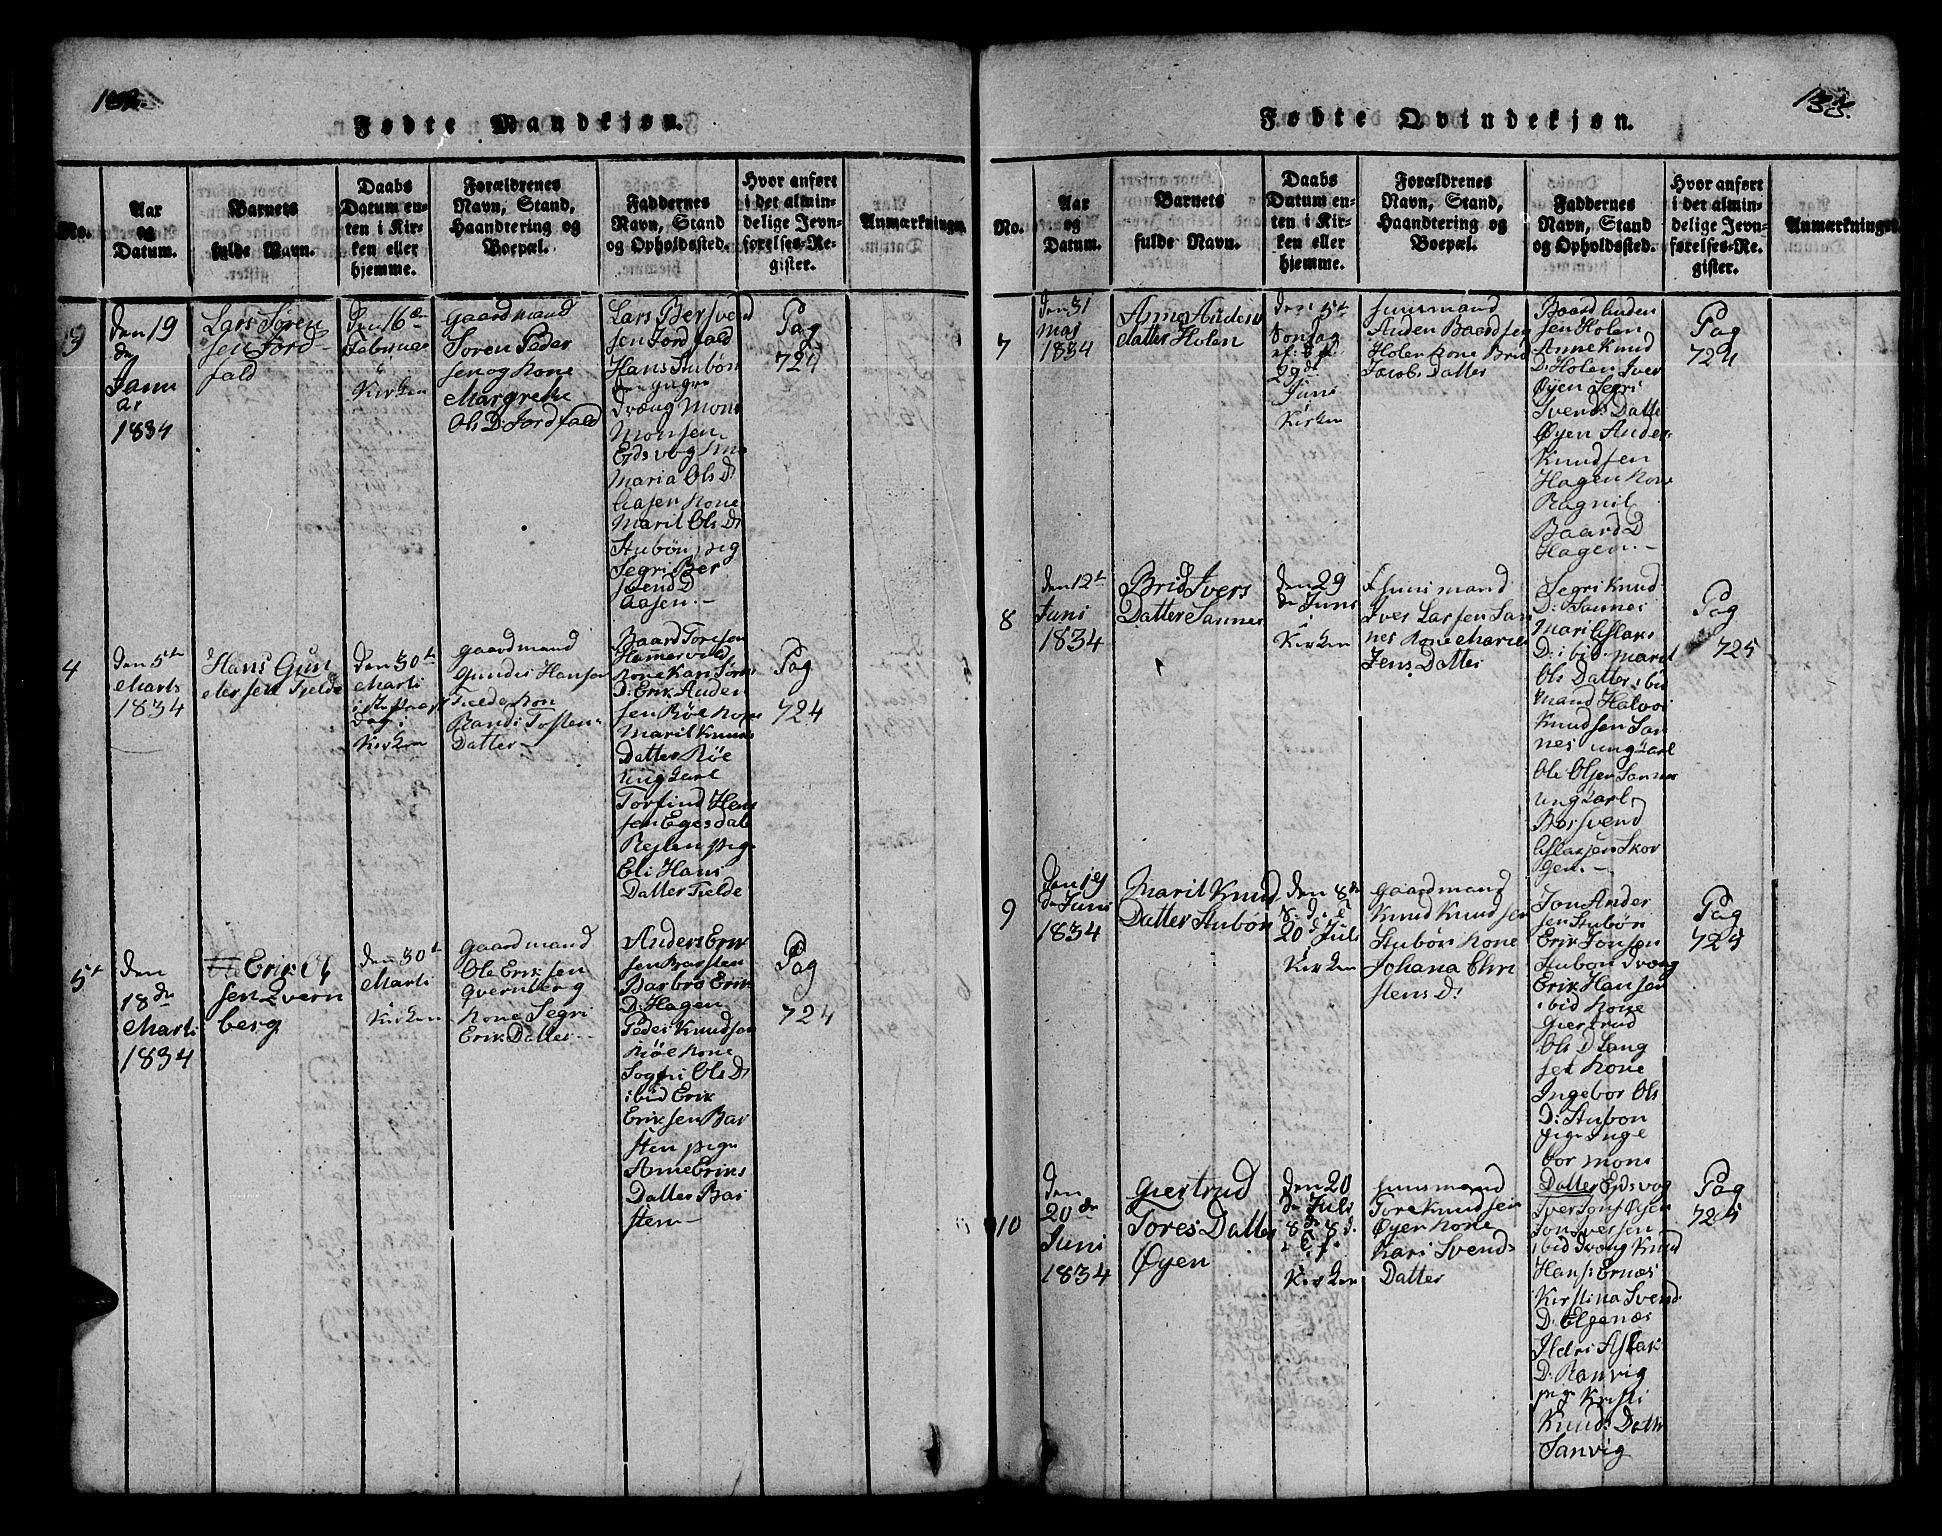 Fødte Mandkjøn.
No.
Aar
og
Datum.
Barnets
fulde Navn.
Daabs
Datum en-
ten i Kir-
ken eller
hjemme.
Forældrenes
Navn, Stand,
Haandtering og
Boepæl.
Faddernes
Navn, Stand
og Opholdssted.
Hvor anført
i det almin-
delige Jevn-
førelses-Re-
gister.
Anmærkninger
3
den 19
Janu
ar
1834
Lars Søren
sen Jord
fald
den 16de
Februar
i
Kirken
Gaardmand
Søren Peder
sen og Kone
Margrethe
Ols D: Jordfald
Lars Bersvend
sen Jordfald
Hans Stubøn
Dræng Mons
Monsen
Eidsvog
Maria Ols D
Aasen Kone
Marit Ols D
Stubøn pig
Segri Ber
svend D
Aasen.-
Pag
724
4
den 5te
Marts
1834
Hans Gun
dersen Tielde
den 30te
Marti
Dag i
Kirken
Gaardmand
Gunder Hansen
Tielde Kone
Randi Tosten
Datter-
Baard Toresen
Hammervold
Kone Kari Sørens
D: Erik Anden
sen Røe Kone
Marit Knuds
Datter Røe
ung Karl
Torfind Han
sen Egesdal
Reslen pige
Eli Hans
Datter Tielde
Pag
724
5te
den
18de
Marti
1834
Erik Ols
sen Qvern
berg
den 30te
Marti
Kirken
Gaardmand
Ole Eriksen
Qvernberg
Kone Segri
Erik Datter-
Anders Erik
sen Barsten
Barbro Erik
D: Hagen
Peder Knudsen
Røe Kone
Segri Ols D
ibid Erik
Eriksen Bar
sten pige
Anne Eriks
Datter Bar
sten-
Pag
724
133.
Fødte Qvindekjøn.
No.
Aar
og
Datum.
Barnets
fulde Navn.
Daabs
Datum en-
ten i Kir-
ken eller
hjemme.
Forældrenes
Navn, Stand,
Haandtering og
Boepæl.
Faddernes
Navn, Stand
og Opholdssted.
Hvor anført
i det almin-
delige Jevn-
førelses-Re-
gister.
Anmærkninger
7
den 31
Maj
1834
Anne Andens
datter Holen
den 5te
Søndag
29de
Juni
Kirken
Huusmand
Anden Baardsen
Holen Kone Brid
Jacobs Datter
Baard Anden
sen Holen
Anne Knud
D: Holen Iver
Øyen Segri
Svends Datter
Øyen Anders
Knudsen
Hagen Kone
Ragnil
Baard D
Hagen.-
Pag
724
8
den 12te
Juni
1834
Brid Ivers
Datter Sannes
den 29
de Juni
i
Kirken
Huusmand
Iver Larsen San
nes Kone Marie
Jens Datter
Segri Knud
D: Sannes
Mari Aslaks
D: ibid Marit
Ols Datter ibid
Mand Halvor
Knudsen San
nes ung Karl
Ole Olsen Sannes
ung Karl
Bersvend
Aslaksen Skor
gen.-
Pag
725
9
den 19
de Juni
1834
Marit Knud
Datter Stubøn
den 8de
20de Juli
Kirken
Gaardmand
Knud Knudsen
Stubøn Kone
Johana Chri
stens D:
Jon Ander
sen Stubøn
Erik Jonsen
Stubøn Dræng
Erik Hansen
ibid Kone
Giertrud
Ols D Lang
set Kone
Ingebor Ols
D: Stubøn
pige Inge
bor Mons
Datter Eidsvog
Pag
725
10
den
20de
Juni
1834
Giertrud
Tores Datter
Øyen
den 20
de Juli
Kirken
Huusmand
Tore Knudsen
Øyen Kone
Kari Svends
Datter
Iver Jons Øyen
Jon Iversen
ibid Dræng Knud
Hans: Ernæs
Kirstina Svend
D: Elgenæs
Ildri Aslak
D: Ranvig
pige Kristi
Knuds Datter
Sanvig
Pag
725